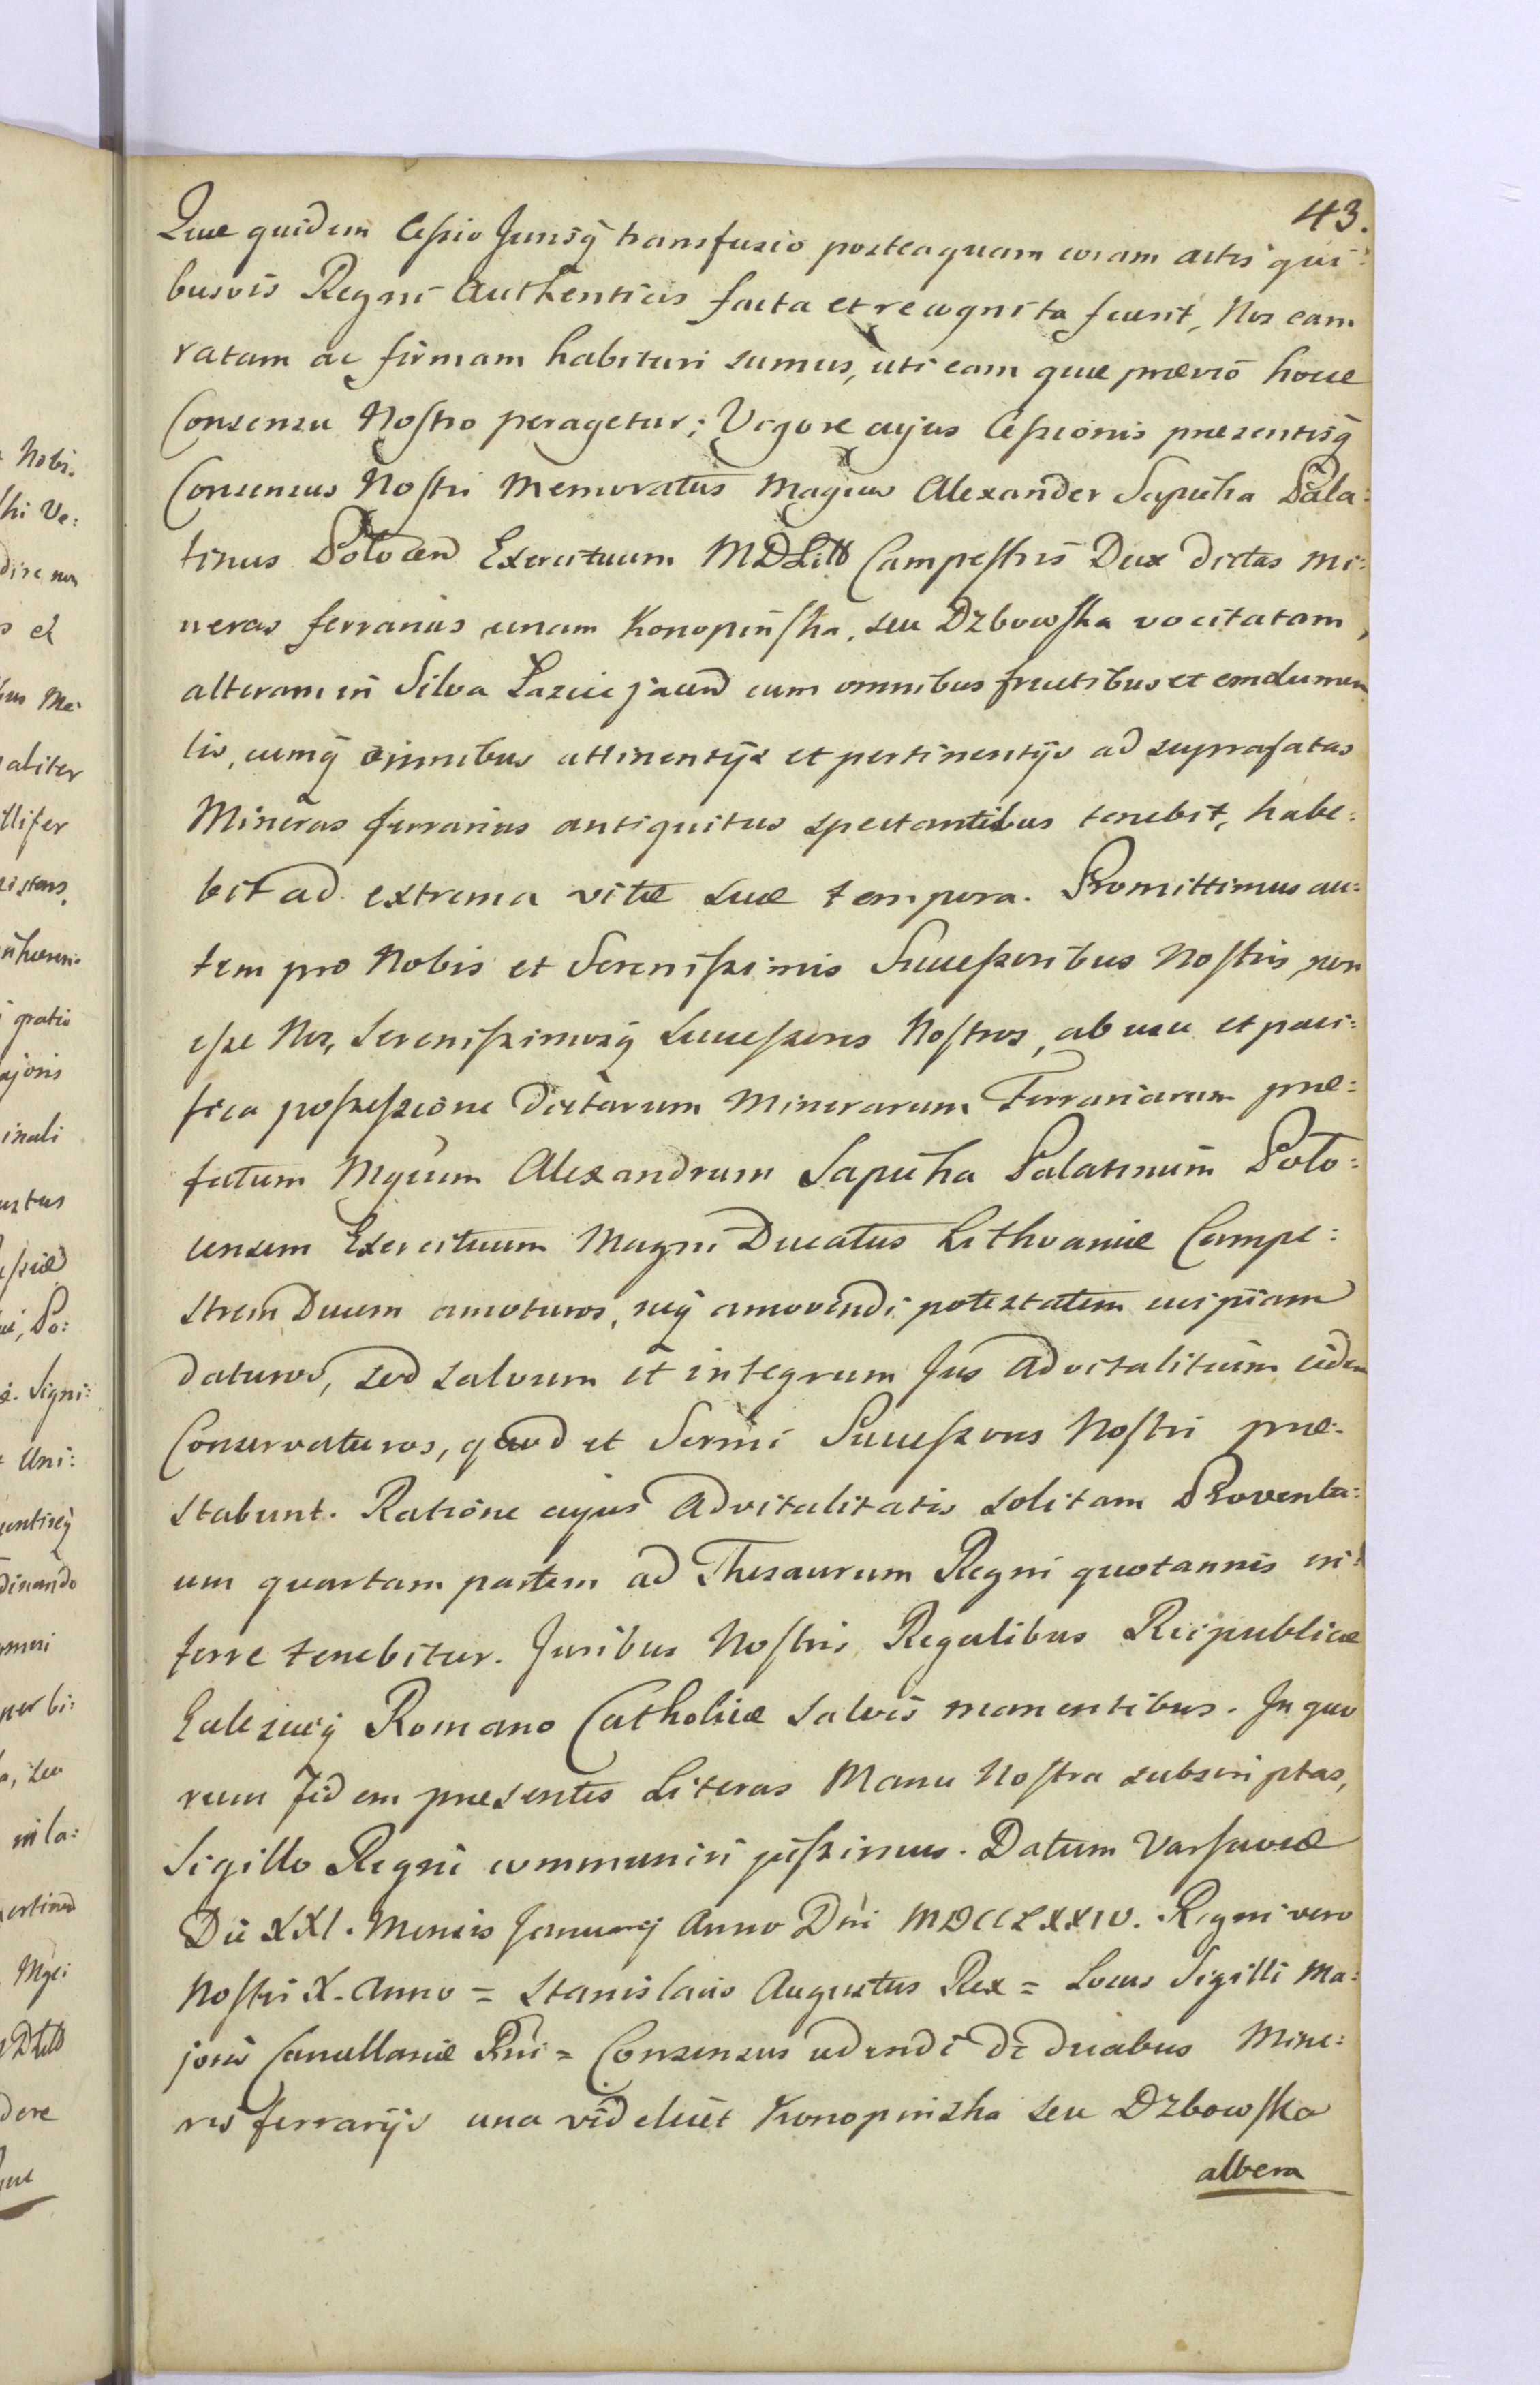 43.
Quæ quidem Ceſsio Jurisq̃ transfusio posteaquam coram actis qui:
busvis Regni Authenticis facta et recognita fuerit, Nos eam
ratam ac firmam habituri sumus, uti eam quæ prævio hocce
Consensu Noſtro peragetur; Vigore cujus Ceſsionis præsentisq̃
Consensus Noſtri Memoratus Magcus Alexander Sapieha Pala:
tinus Polocen Exercituum MDLitt Campeſtris Dux dictas Mi:
neras ferrarias unam Konopinſka, seu Dzbowſka vocitatam,
alteram in Silva Lazecjacen cum omnibus fructibus et emolumen
tis, cumq̃ omnibus attinentijs et pertinentijs ad suprafatas
Mineras ferrarias antiquitus spectantibus tenebit, habe:
bit ad extrema vitæ suæ tempora. Promittimus au:
tem pro Nobis et Sereniſsimis Succeſsoribus Noſtris, non
eſse Nos, Sereniſsimosq̃ Succeſsores Noſtros, ab usu et paci:
fica poſseſsione dictarum Minerarum Ferrariarum præ:
fatum Mgcum Alexandrum Sapieha Palatinum Polo:
censem Exercituum Magni Ducatus Lithvaniæ Campe:
strem Ducem amoturos, neq̃ amovendi potestatem cuipiam
daturos, sed salvum et integrum Jus Advitalitium eidem
Conservaturos, quod et Sermi Succeſsores Noſtri præ:
stabunt. Ratione cujus Advitalitatis solitam Proventu:
um quartam partem ad Thesaurum Regni quotannis in:
ferre tenebitur. Juribus Noſtris Regalibus Reipublicæ
Ecclesiæq̃ Romano Catholicæ salvis manentibus. In quo
rum fidem præsentes Literas Manu Noſtra subscriptas,
Sigillo Regni communiri juſsimus. Datum Varſaviæ
Die XXI. Mensis Januarij Anno Dni MDCCLXXIV. Regni vero
Noſtri X. Anno = Stanislaus Augustus Rex = Locus Sigilli Ma:
joris Cancellariæ Rni = Consensus cedendi de duabus Mine:
ris ferrarijs una videlicet Konopinska seu Dzbowſka
altera